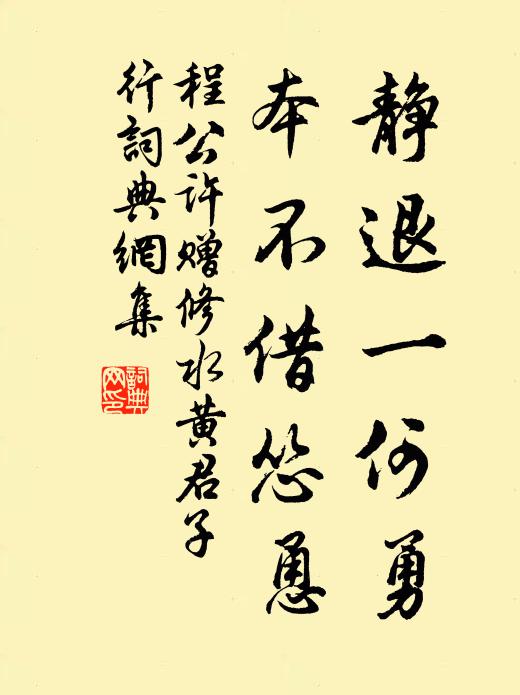 静退一何勇
本不借怂恿
程公许赠修水黄君子
行词典網集
詞典網印